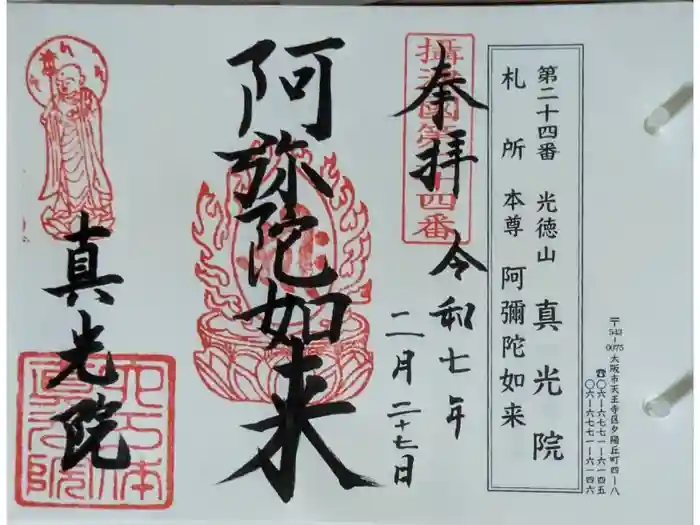 〒543-0075 大阪市天王寺区夕陽丘町四ー八
☎〇六ー六七七一ー六一四五
〇六ー六七七一ー六一四六
第二十四番 光徳山 真光院
札所本尊 阿彌陀如来
奉拝
攝津國第 十四番
令和七年
二月二十七日
阿弥陀如来
真光院